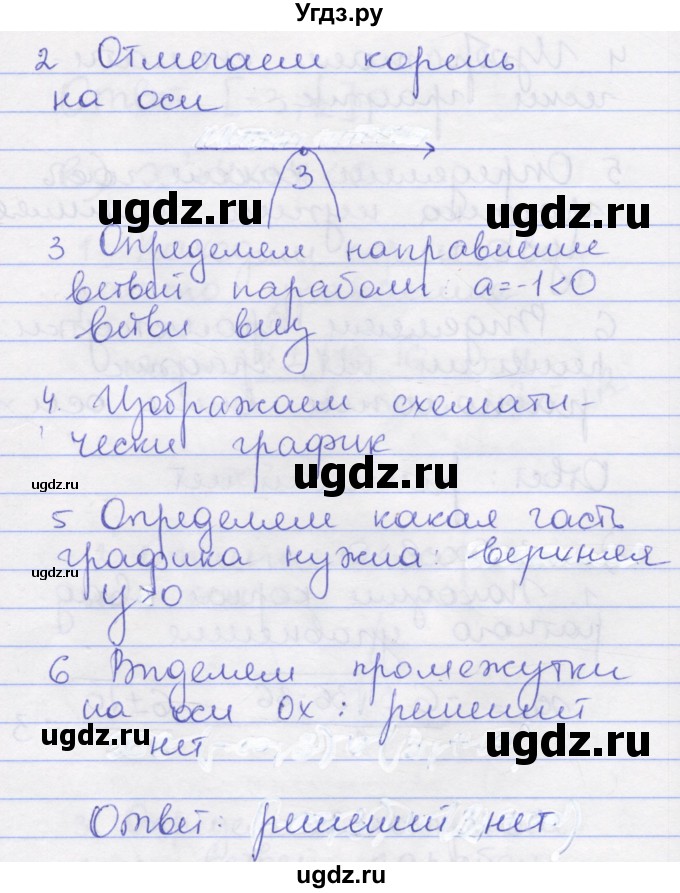 Угдз.ру
2 Отмечаем корень
на оси
3
ugdz.ru ugdz.ru
3 Определем направление
ветвей парабол: a=-1<0
ветви вниз
4. Изображаем схемати-
чески график
ugdz.ru ugdz.ru
5 Определяем какая часть
графика нужна: верхняя
ugdz.ru
y>0
6 Выделяем промежутки
на оси ox: решений
ugdz.ru ugdz.ru
нет
Ответ: решений нет.